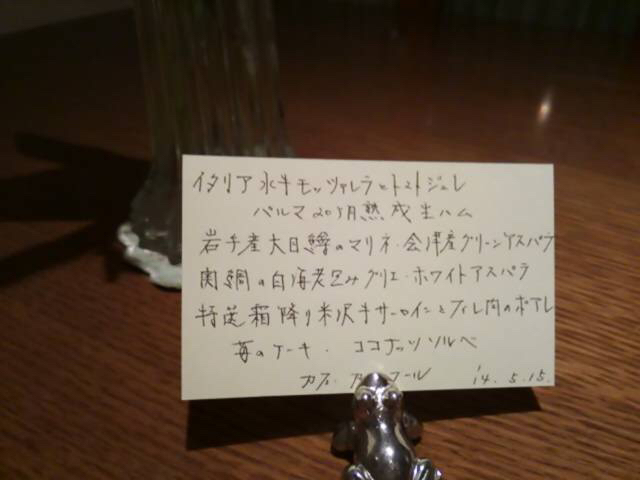 イタリア水牛モッツァレラとトマトジュレ
パルマ20ヶ月熟成生ハム
岩手産大目鱒のマリネ・会津産グリーンアスパラ
真鯛の白海老包みグリエ・ホワイトアスパラ
特選霜降り米沢牛サーロインとフィレ肉のポアレ
苺のケーキ・ココナッツソルベ
カフェ
'14.5.15.